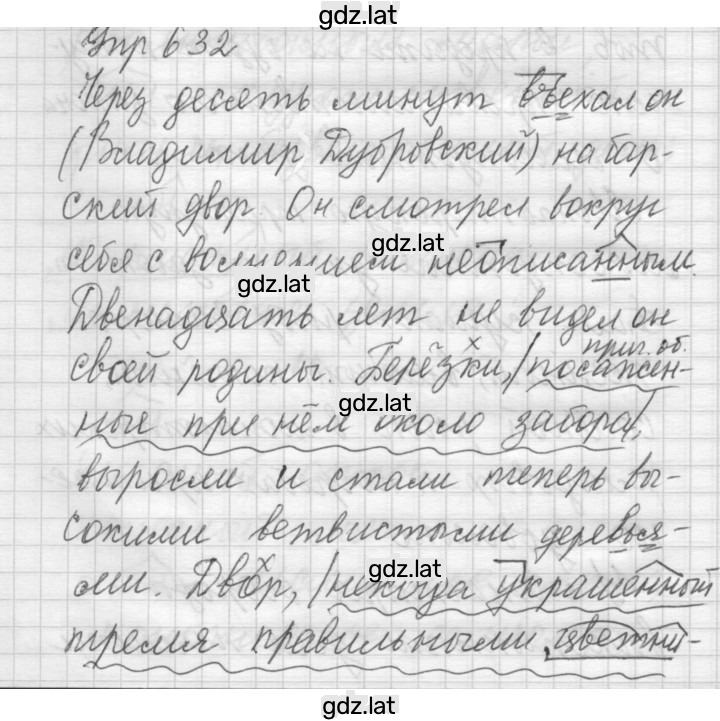 gdz.lat
Упр 632
Через десять минут въехал он
(Владимир Дубровский) на бар-
ский двор. Он смотрел вокруг
gdz.lat
себя с волнением неописанным.
gdz.lat
Двенадцать лет не видел он
прич. об.
своей родины. Берёзки, посажен-
gdz.lat
ные при нём около забора,
выросли и стали теперь вы-
сокими ветвистыми деревья-
gdz.lat
ми. Двор, некогда украшенный
тремя правильными цветни-
gdz.lat